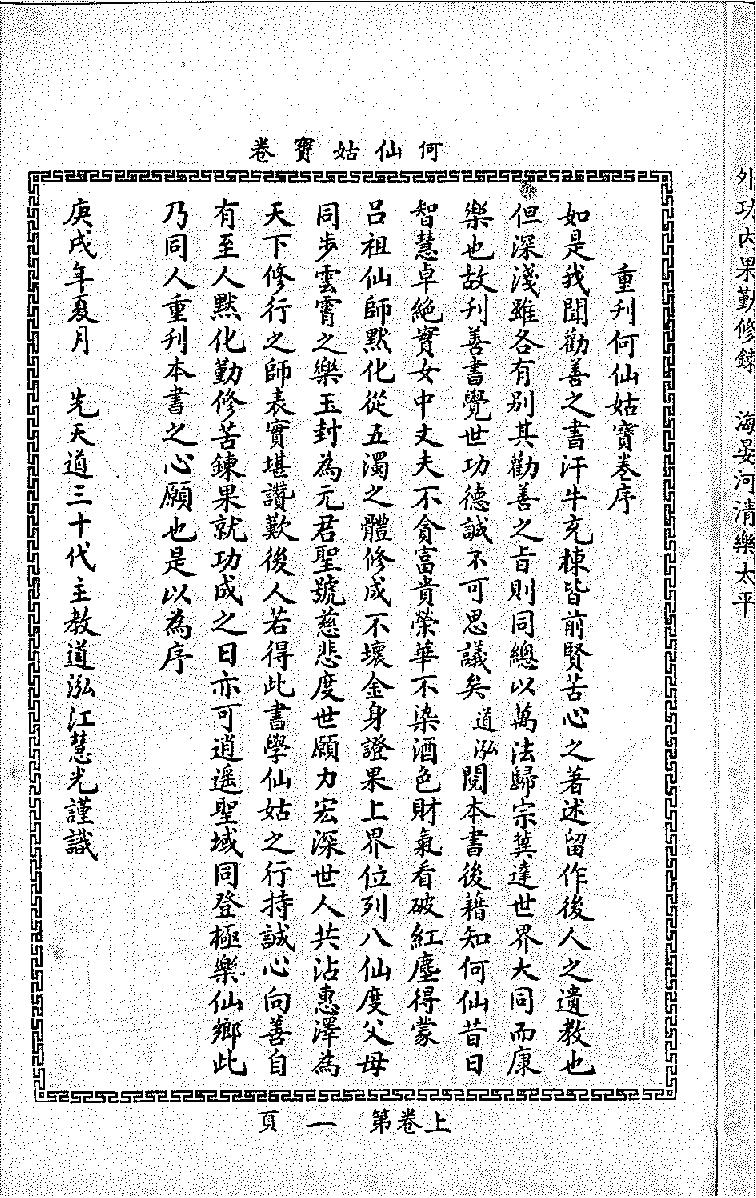 何仙姑寶卷
重刊何仙姑寶卷序
如是我聞勸善之書汗牛充棟皆前賢苦心之著述留作後人之遺教也
但深淺雖各有別其勸善之旨則同總以萬法歸宗冀達世界大同而康
樂也故刊善書覺世功德誠不可思議矣道泓閱本書後藉知何仙昔日
智慧卓絕實女中丈夫不貪富貴榮華不染酒色財氣看破紅塵得蒙
呂祖仙師默化從五濁之體修成不壞金身證果上界位列八仙度父母
同步雲霄之樂玉封為元君聖號慈悲度世願力宏深世人共沾惠澤為
天下修行之師表實堪讚歎後人若得此書學仙姑之行持誠心向善自
有至人默化勤修苦鍊果就功成之日亦可逍遙聖域同登極樂仙鄉此
乃同人重刊本書之心願也是以為序
庚戌年夏月 先天道三十代主教道泓江慧光謹識
上卷第一頁
外功內果勤修鍊 海晏河清樂太平